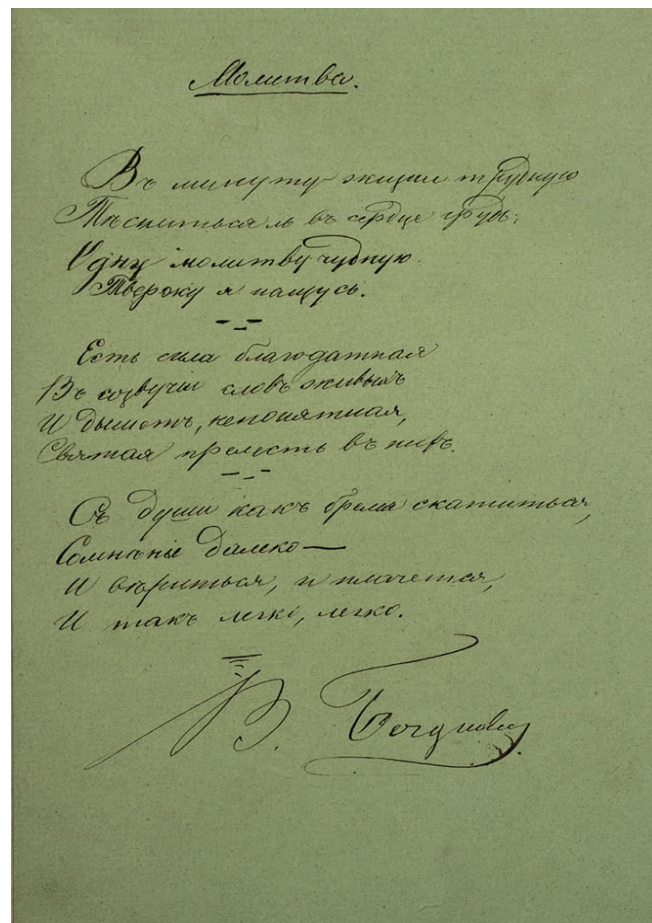 Молитва.
Въ минуту жизни трудную
Тѣснитьсяль въ сердце грусь:
Одну молитву чудную
Твержу я наизусь.
Есть сила благодатная
Въ созвучіи словъ живыхъ
И дышетъ, непонятная,
Святая прелесть въ нихъ.
Съ души какъ бремя скатиться,
Сомненіе далеко —
И вѣриться, и плачется,
И такъ легко, легко.
В.